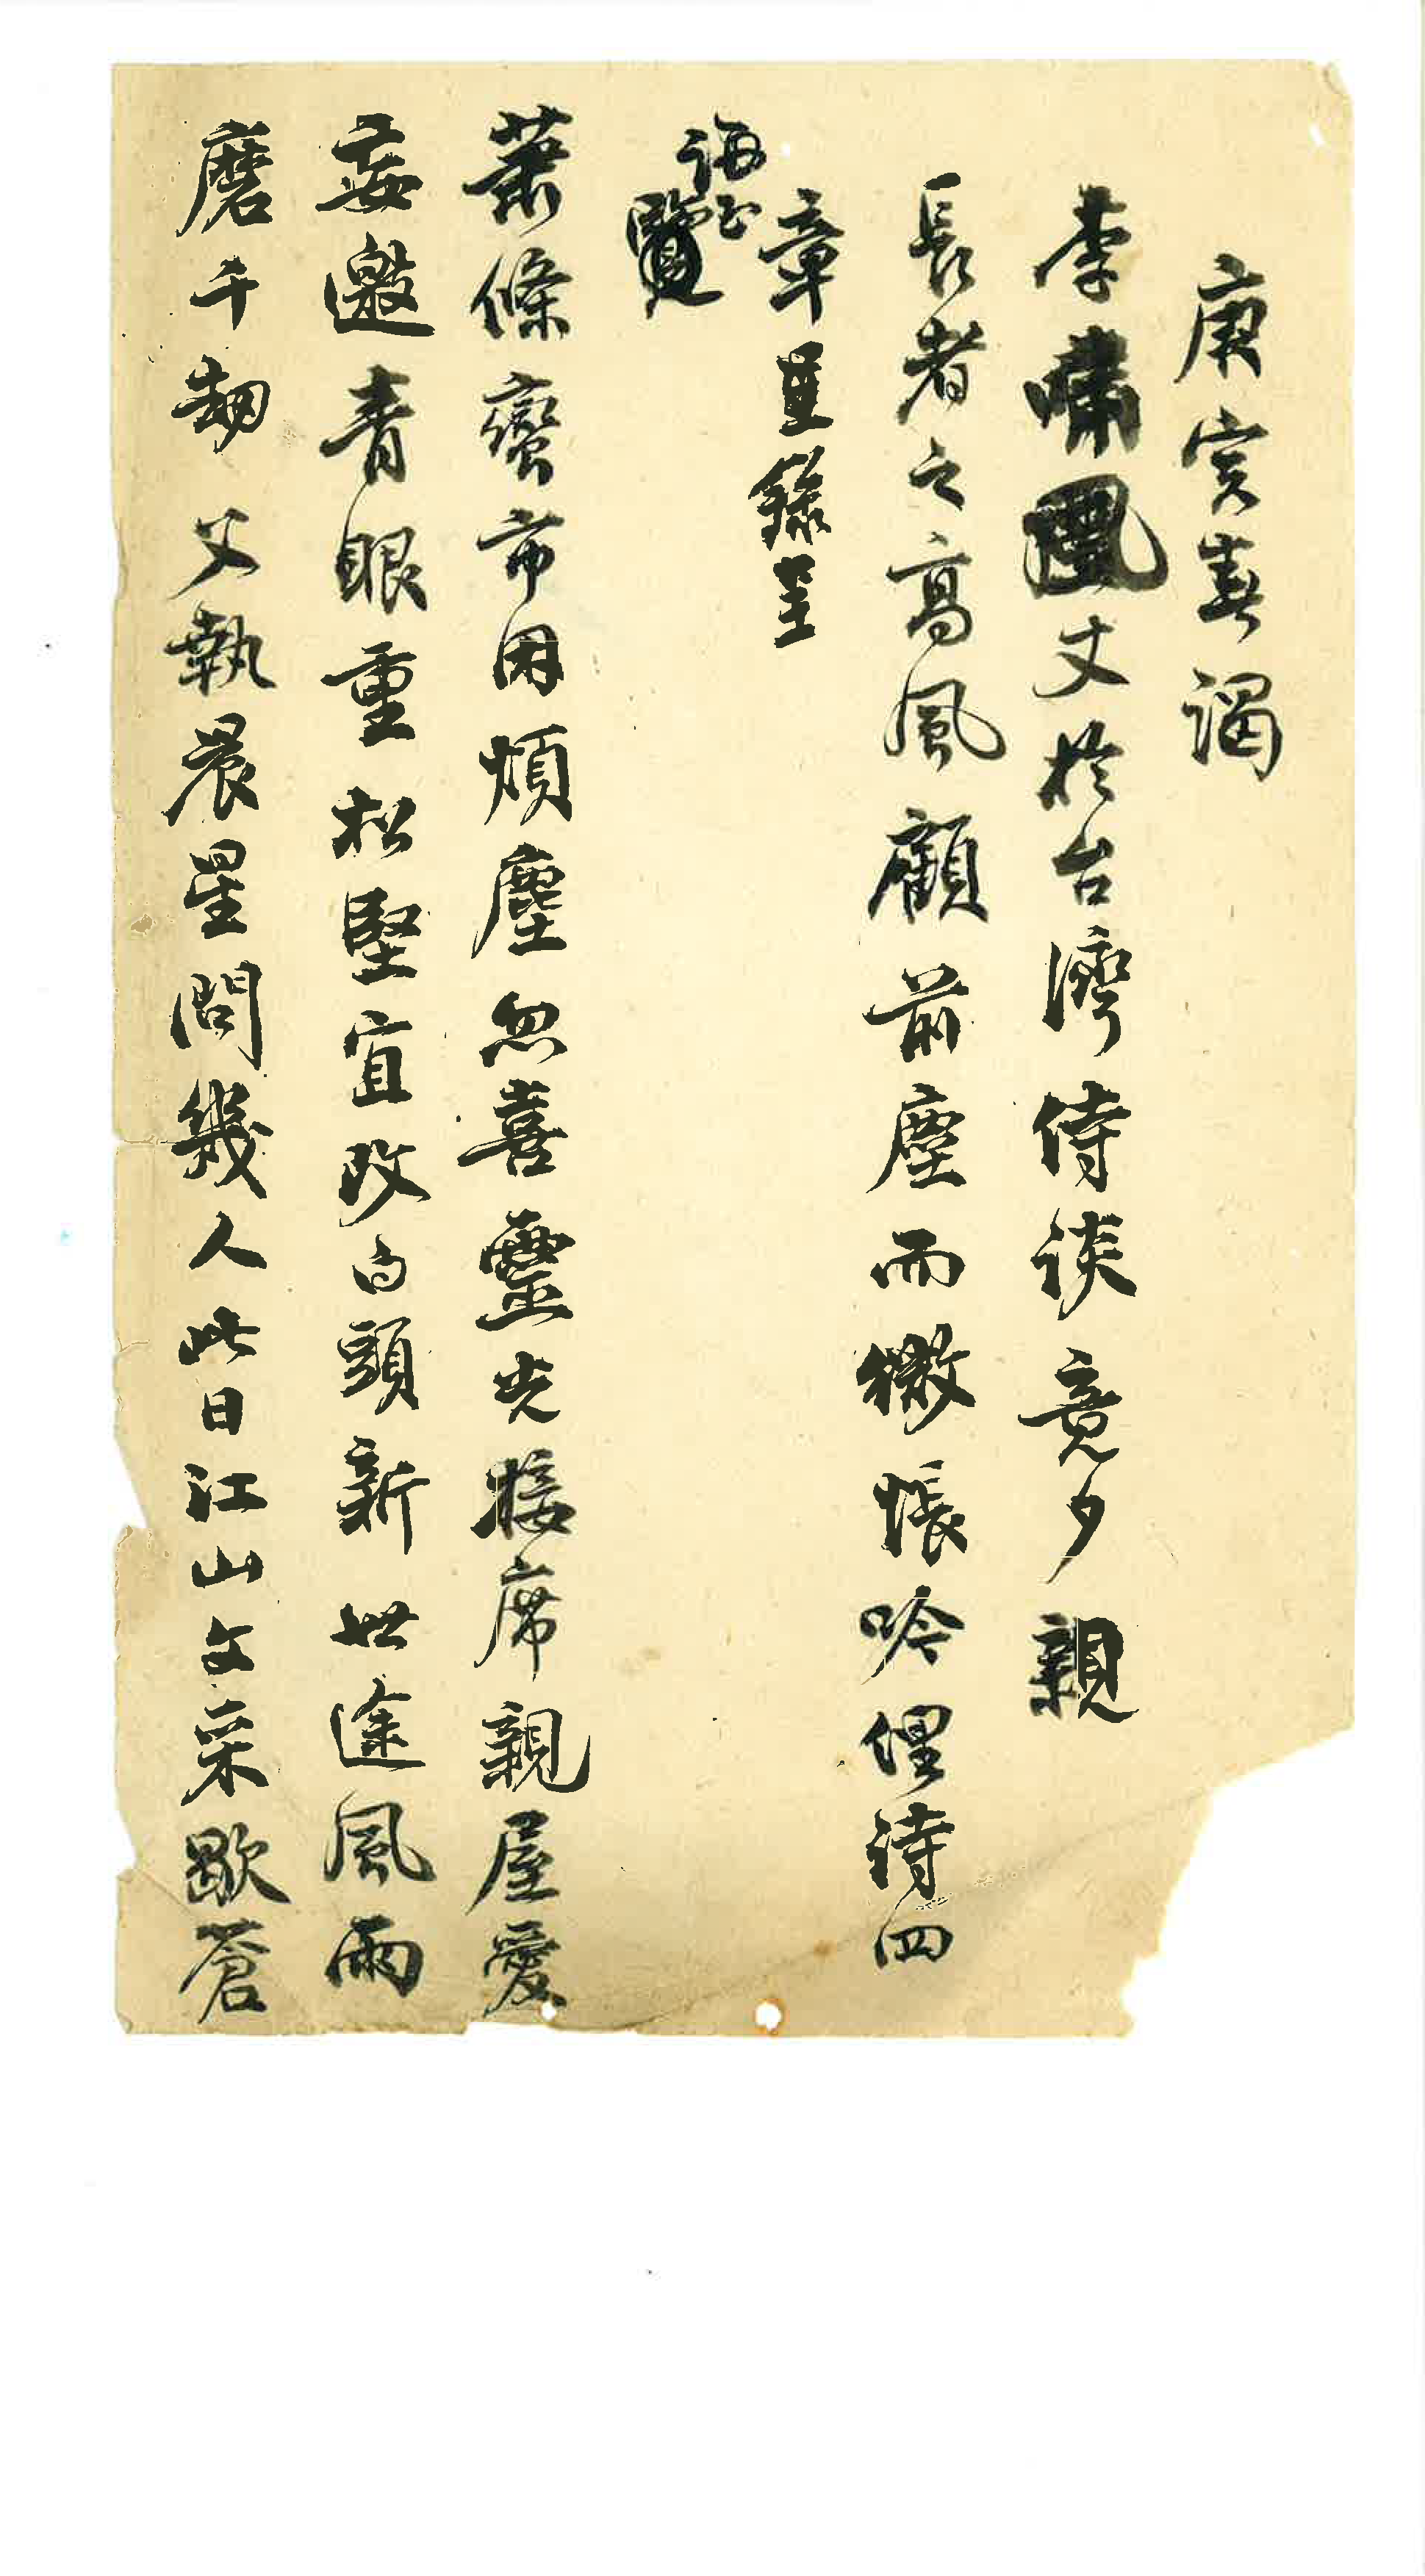 庚寅春謁
李嘯丈於台灣侍談竟夕親
長者之高風顧前塵而微悵吟俚詩四
章錄呈
誨正
覽
蕭條蠻市困煩塵忽喜靈光接席親屋愛
妄邀青眼重松堅宜改白頭新世途風雨
磨千劫父執晨星問幾人此日江山文采歇蒼